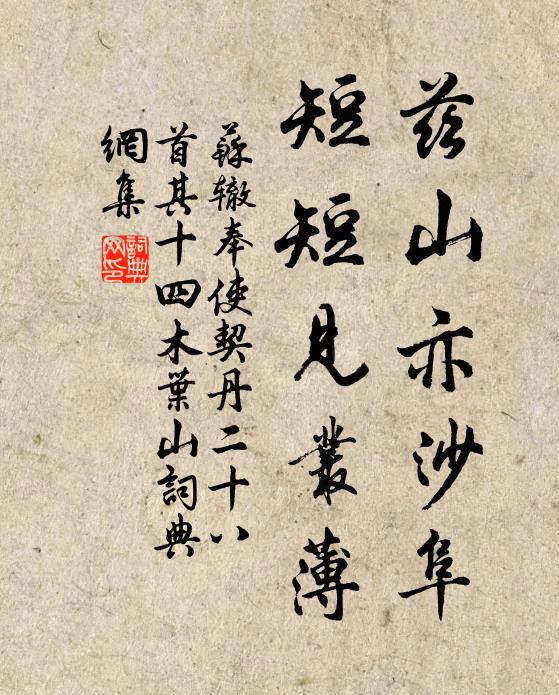 茲山亦沙阜
短短見叢薄
蘇辙奉使契丹二十八
首其十四木葉山詞典
網集
詞典
网印